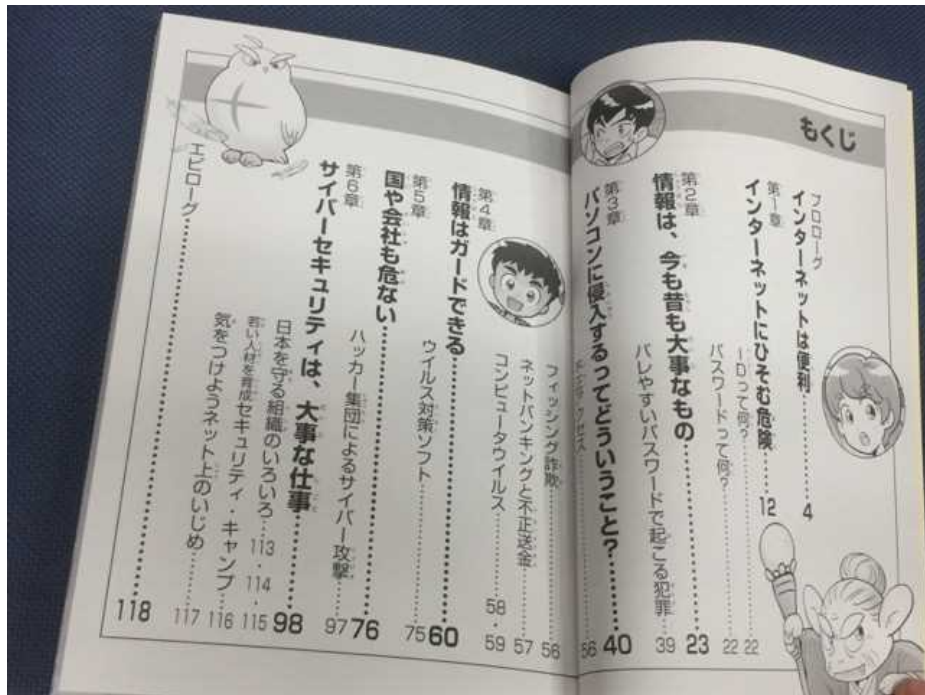 もくじ
プロローグ
インターネットは便利……4
第1章
インターネットにひそむ危険……12
IDって何?……22
パスワードって何?……22
第2章
情報は、今も昔も大事なもの……23
バレやすいパスワードで起こる犯罪……39
第3章
パソコンに侵入するってどういうこと?……40
クセス……56
フィッシング詐欺……56
ネットバンキングと不正送金……57
コンピュータウイルス……58・59
第4章
情報はガードできる……60
ウイルス対策ソフト……75
第5章
国や会社も危ない……76
ハッカー集団によるサイバー攻撃……97
第6章
サイバーセキュリティは、大事な仕事……98
日本を守る組織のいろいろ……113・114・115
若い人材を育成セキュリティ・キャンプ……116
気をつけようネット上のいじめ……117
エピローグ……118